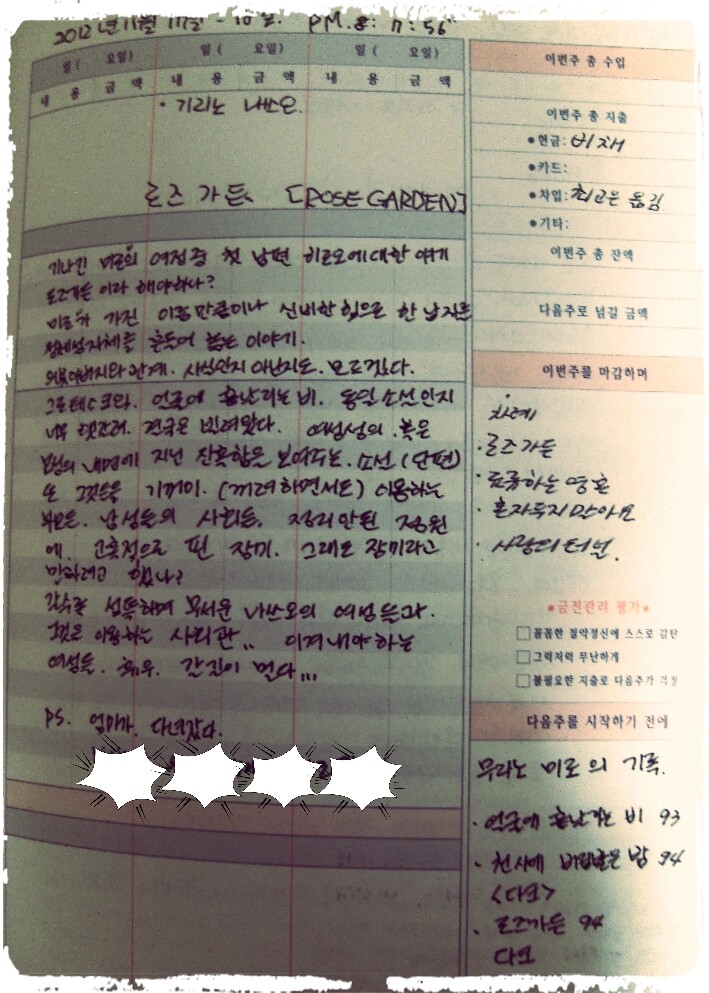 2012년 11월 17일 - 10일. PM. 8: 7:56"
일 ( 요일) 일 ( 요일) 일 ( 요일)
내 용 금 액 내 용 금 액 내 용 금 액
· 기리노 나쓰오.
로즈 가든. [ROSE GARDEN]
기나긴 미로의 여정중 첫 남편 히로오에 대한 얘기
로즈가든 이라 해야하나?
미로가 가진 이름만큼이나 신비한 힘으로 한 남자를
정체성자체를 흔들어 놓는 이야기.
의붓아버지와 관계. 사실인지 아닌지도. 모르겠다.
그로테스크와. 얼굴에 흩날리는 비. 동일 소설인지
너무 헷갈려. 결국은 빌려왔다. 여성성의. 혹은
본성의 내면에 지닌 잔혹함을 보여주는. 소설 (단편)
또 그것들을 기꺼이. (꺼려하면서도) 이용하는
부모들. 남성들의 사회들. 정리안된 정원
에. 고혹적으로 핀 장미. 그래도 장미라고
말하려고 했나?
갈수록 섬뜩하며 무서운 나쓰오의 여성들과.
그것을 이용하는 사회관.. 이겨내야하는
여성들. 휴우. 갈길이 멀다...
PS. 엄마가. 다녀갔다.
이번주 총 수입
이번주 총 지출
●현금: 비채
●카드:
●차입: 최고은 옮김
●기타:
이번주 총 잔액
다음주로 넘길 금액
이번주를 마감하며
차례
· 로즈 가든
· 표류하는 영혼
· 혼자두지 말아요
· 사랑의 터널.
●금전관리 평가●
□꼼꼼한 절약정신에 스스로 감탄
□그럭저럭 무난하게
□불필요한 지출로 다음주가 걱정
다음주를 시작하기 전에
무라노 미로의 기록.
· 얼굴에 흩날리는 비 93
· 천사에 버림받은 밤 94
<다크>
· 로즈가든 94
다크